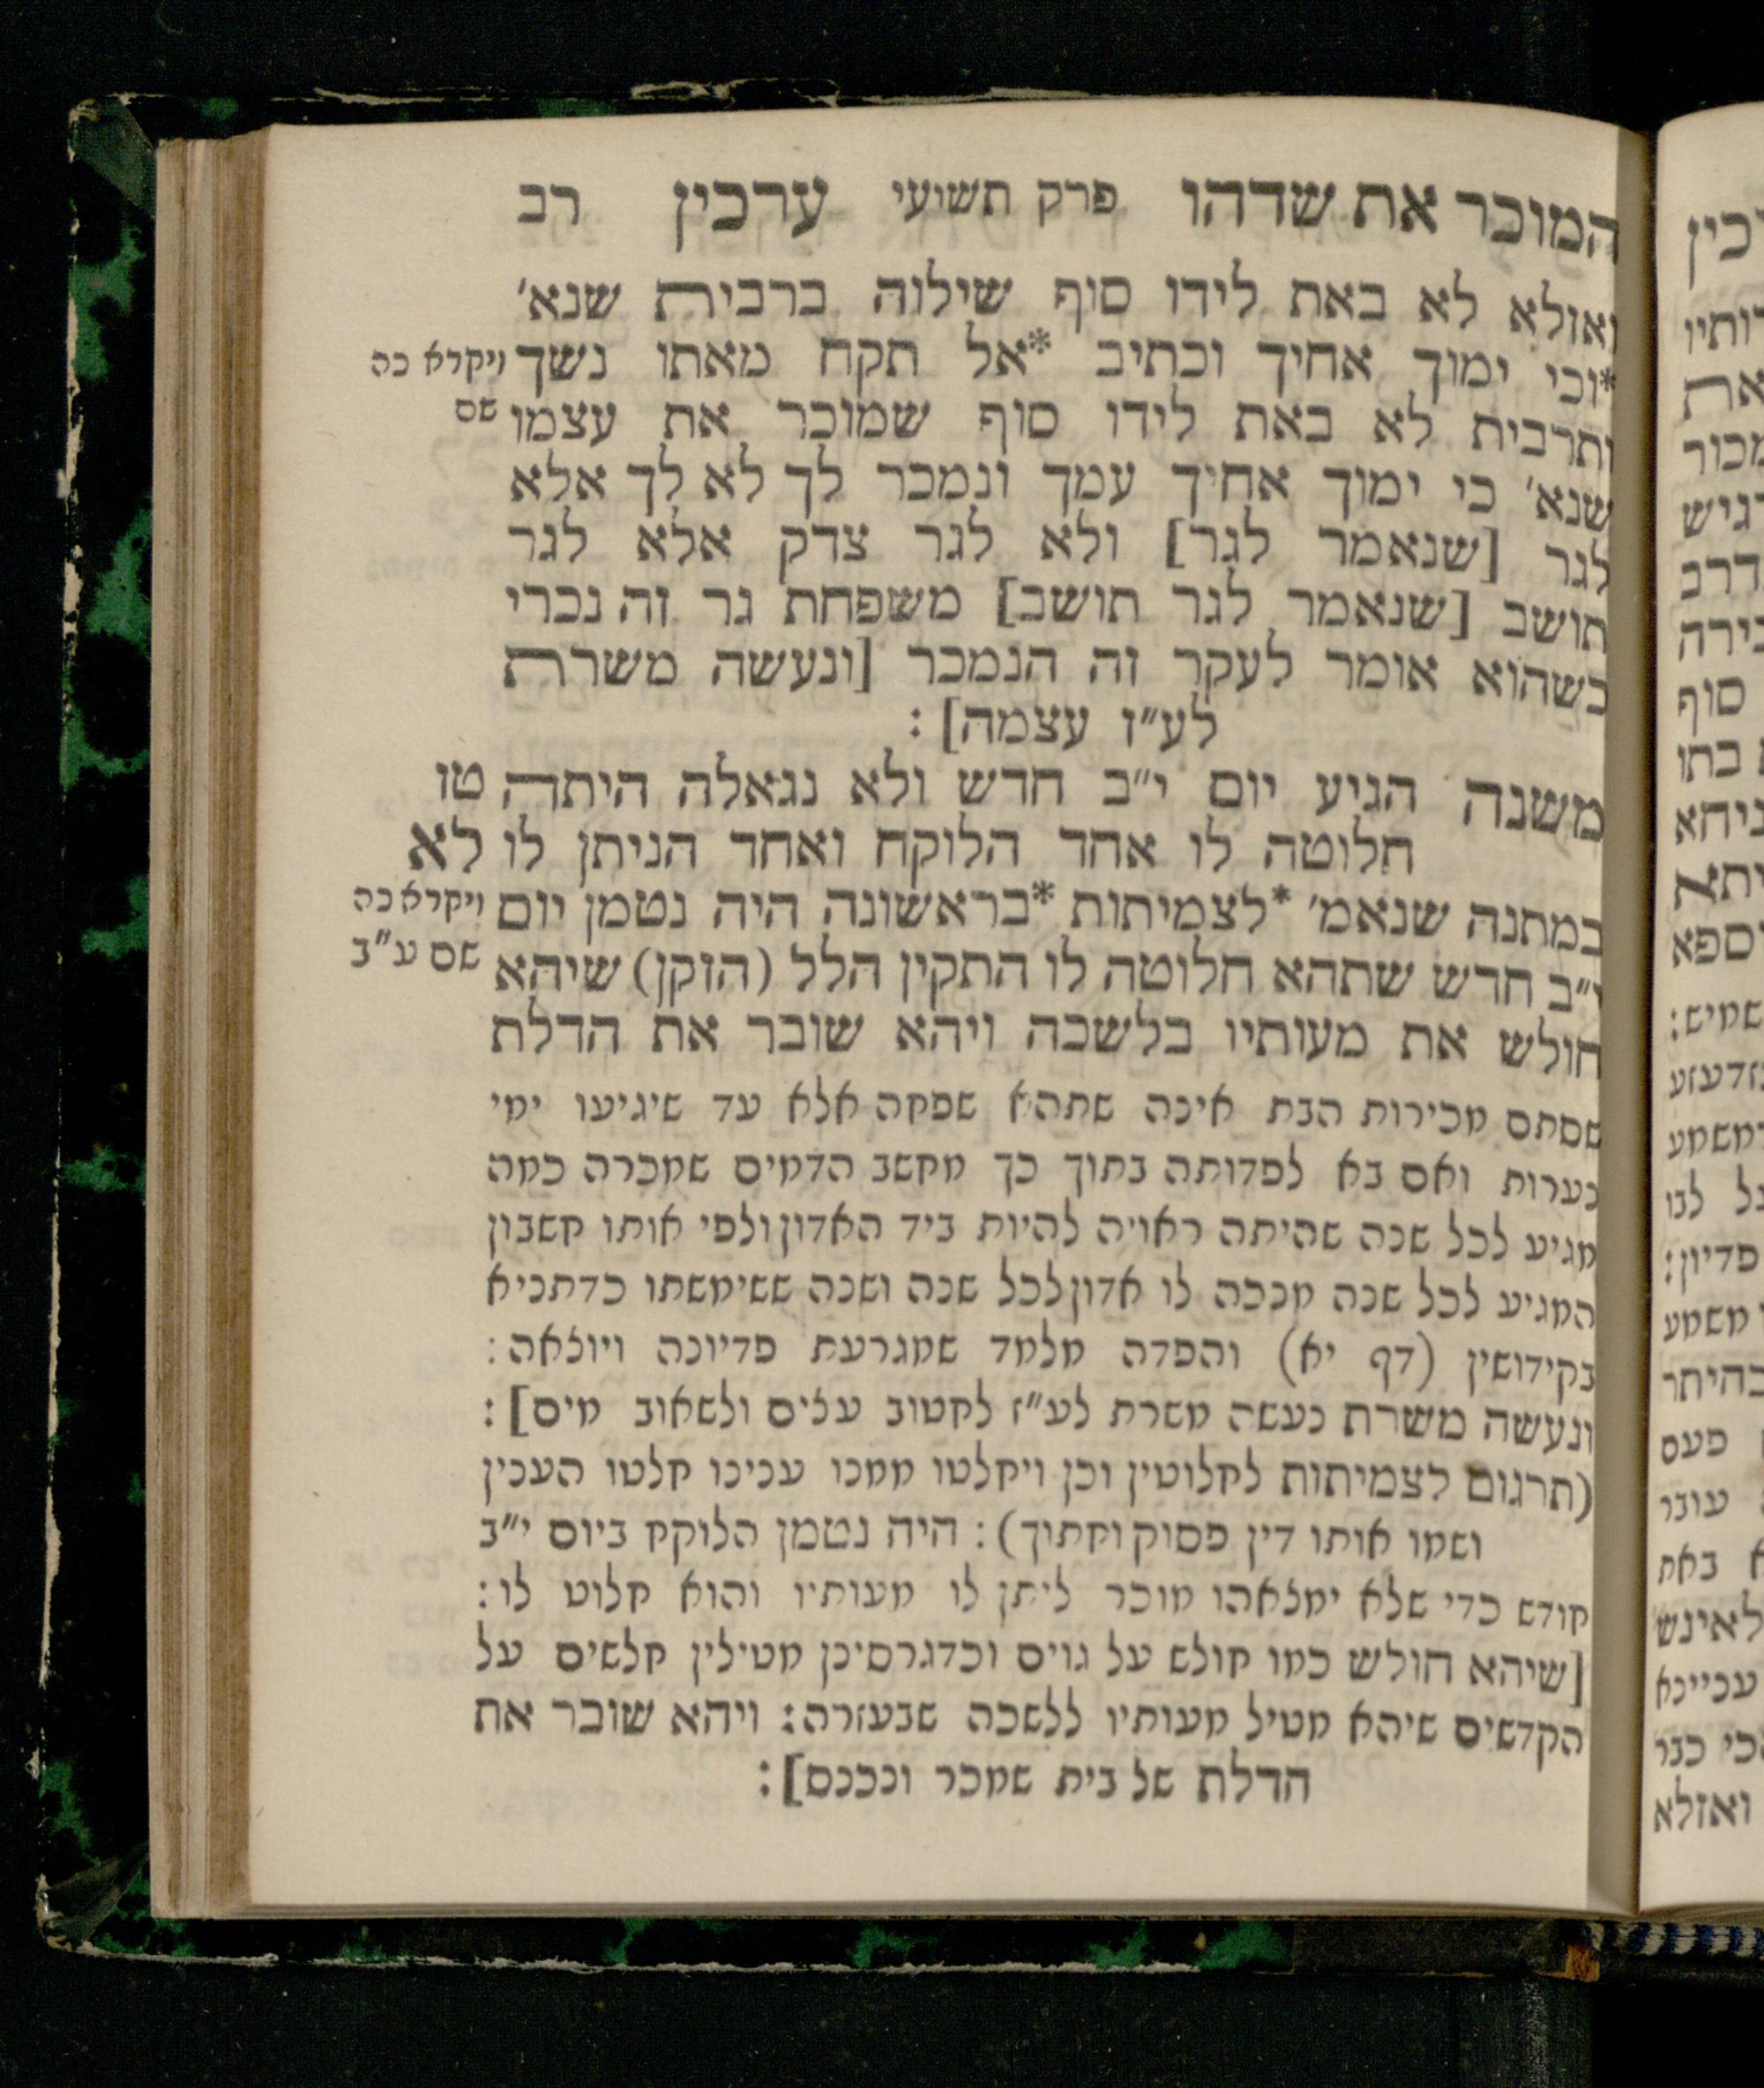 המוכר את שדהו פרק תשיעי ערכין רב
ואזלא לא באת לידו סוף שילוה ברבית שנא׳
*וכי ימוך אחיך וכתיב *אל תקח מאתו נשך ויקרא כה
ותרבית לא באת לידו סוף שמוכר את עצמו שם
שנא׳ כי ימוך אחיך עמך ונמכר לך לא לך אלא
לגר [שנאמר לגר] ולא לגר צדק אלא לגר
תושב [שנאמר לגר תושב] משפחת גר זה נכרי
כשהוא אומר לעקר זה הנמכר [ונעשה משרת
לע״ז עצמה]:
משנה הגיע יום י״ב חדש ולא נגאלה היתה טו
חלוטה לו אחד הלוקח ואחד הניתן לו לא
במתנה שנאמ׳ *לצמיתות *בראשונה היה נטמן יום ויקרא כה
י״ב חדש שתהא חלוטה לו התקין הלל (הזקן) שיהא שם ע״ב
חולש את מעותיו בלשכה ויהא שובר את הדלת
שסתם מכירות הבת אינה שתהא שפחה אלא עד שיגיעו ימי
נערות ואם בא לפדותה בתוך כך מחשב הדמים שמכרה כמה
מגיע לכל שנה שהיתה ראויה להיות ביד האדון ולפי אותו חשבון
המגיע לכל שנה מנכה לו אדון לכל שנה ושנה ששימשתו כדתניא
בקידושין (דף יא) והפדה מלמד שמגרעת פדיונה ויוצאה:
ונעשה משרת נעשה משרת לע״ז לחטוב עצים ולשאוב מים]:
(תרגום לצמיתות לחלוטין וכן ויחלטו ממנו ענינו חלטו הענין
ושמו אותו דין פסוק וחתוך): היה נטמן הלוקח ביום י״ב
חודש כדי שלא ימצאהו מוכר ליתן לו מעותיו והוא חלוט לו:
[שיהא חולש כמו חולש על גוים וכדגרסינן מטילין חלשים על
הקדשים שיהא מטיל מעותיו ללשכה שבעזרה: ויהא שובר את
הדלת של בית שמכר ונכנס]: